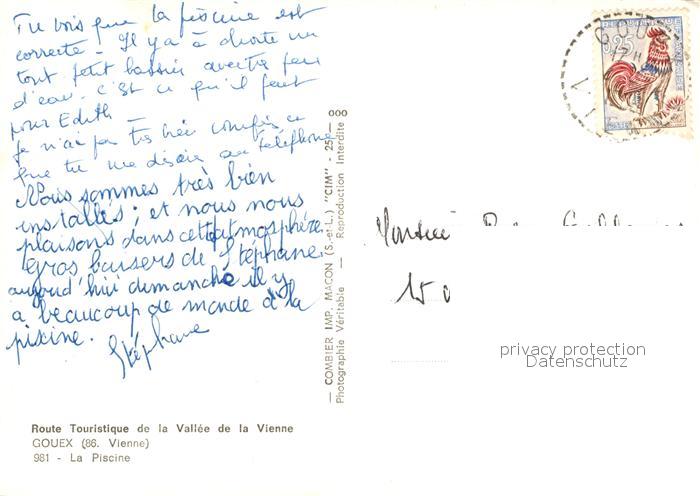 Tu vois que la piscine est
correcte - Il y a à droite un
tout petit bassin avec très peu
d'eau. c'est ce qu'il faut
pour Edith -
Je n'ai pas très bien compris ce
que tu me disais au téléphone
Nous sommes très bien
installés; et nous nous
plaisons dans cette atmosphère.
Gros baisers de Stéphane.
aujourd'hui dimanche il y
a beaucoup de monde à la
piscine.
Stéphane
Route Touristique de la Vallée de la Vienne
GOUEX (86. Vienne)
981 - La Piscine
— COMBIER IMP. MACON (S.-et-L.) "CIM" - 25 — 000
Photographie Véritable — Reproduction Interdite
0,25
Monsieur
150
privacy protection
Datenschutz